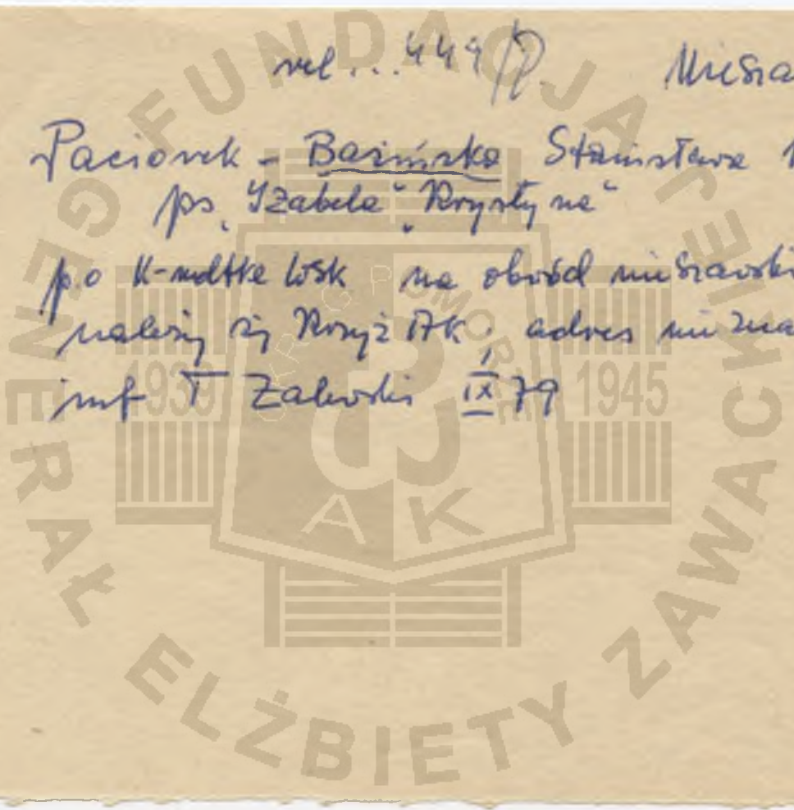 rel...449/P. Miesza
Paciorek - Bazińska Stanisława
ps. "Izabela" "Krystyna"
p.o K-mdtke WSK na obwód mieszawski
należy się Krzyż AK, adres niezna
inf T Zalewski IX 79
FUNDACJA GENERAŁ ELŻBIETY ZAWACKIEJ
OKRĘG POMORZE
1939 1945
AK